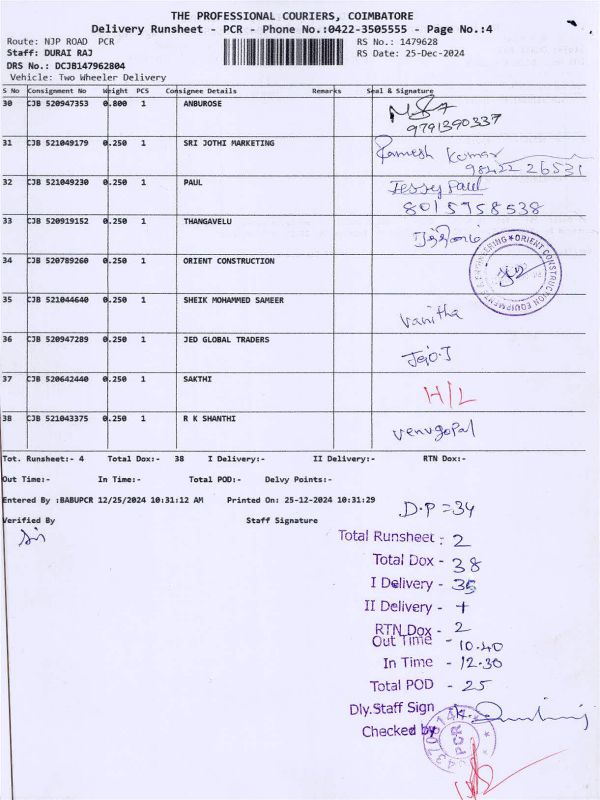 THE PROFESSIONAL COURIERS, COIMBATORE
Delivery Runsheet - PCR - Phone No.:0422-3505555 - Page No.:4
Route: NJP ROAD PCR RS No.: 1479628
Staff: DURAI RAJ RS Date: 25-Dec-2024
DRS No.: DCJB147962804
Vehicle: Two Wheeler Delivery
S No Consignment No Weight PCS Consignee Details Remarks Seal & Signature
30 CJB 520947353 0.800 1 ANBUROSE
9791390337
31 CJB 521049179 0.250 1 SRI JOTHI MARKETING Ramesh Kumar
98422 26531
32 CJB 521049230 0.250 1 PAUL Jessy Paul
8015958538
33 CJB 520919152 0.250 1 THANGAVELU
34 CJB 520789260 0.250 1 ORIENT CONSTRUCTION ORIENT CONSTRUCTION EQUIPMENTS & ENGINEERING
35 CJB 521044640 0.250 1 SHEIK MOHAMMED SAMEER Vanitha
36 CJB 520947289 0.250 1 JED GLOBAL TRADERS Jojo.J
37 CJB 520642440 0.250 1 SAKTHI H/L
38 CJB 521043375 0.250 1 R K SHANTHI Venugopal
Tot. Runsheet:- 4 Total Dox:- 38 I Delivery:- II Delivery:- RTN Dox:-
Out Time:- In Time:- Total POD:- Delvy Points:-
Entered By :BABUPCR 12/25/2024 10:31:12 AM Printed On: 25-12-2024 10:31:29
D.P = 34
Verified By Staff Signature
Total Runsheet : 2
Total Dox - 38
I Delivery - 35
II Delivery - 1
RTN Dox - 2
Out Time - 10.40
In Time - 12.30
Total POD - 25
Dly.Staff Sign
Checked by
PCR